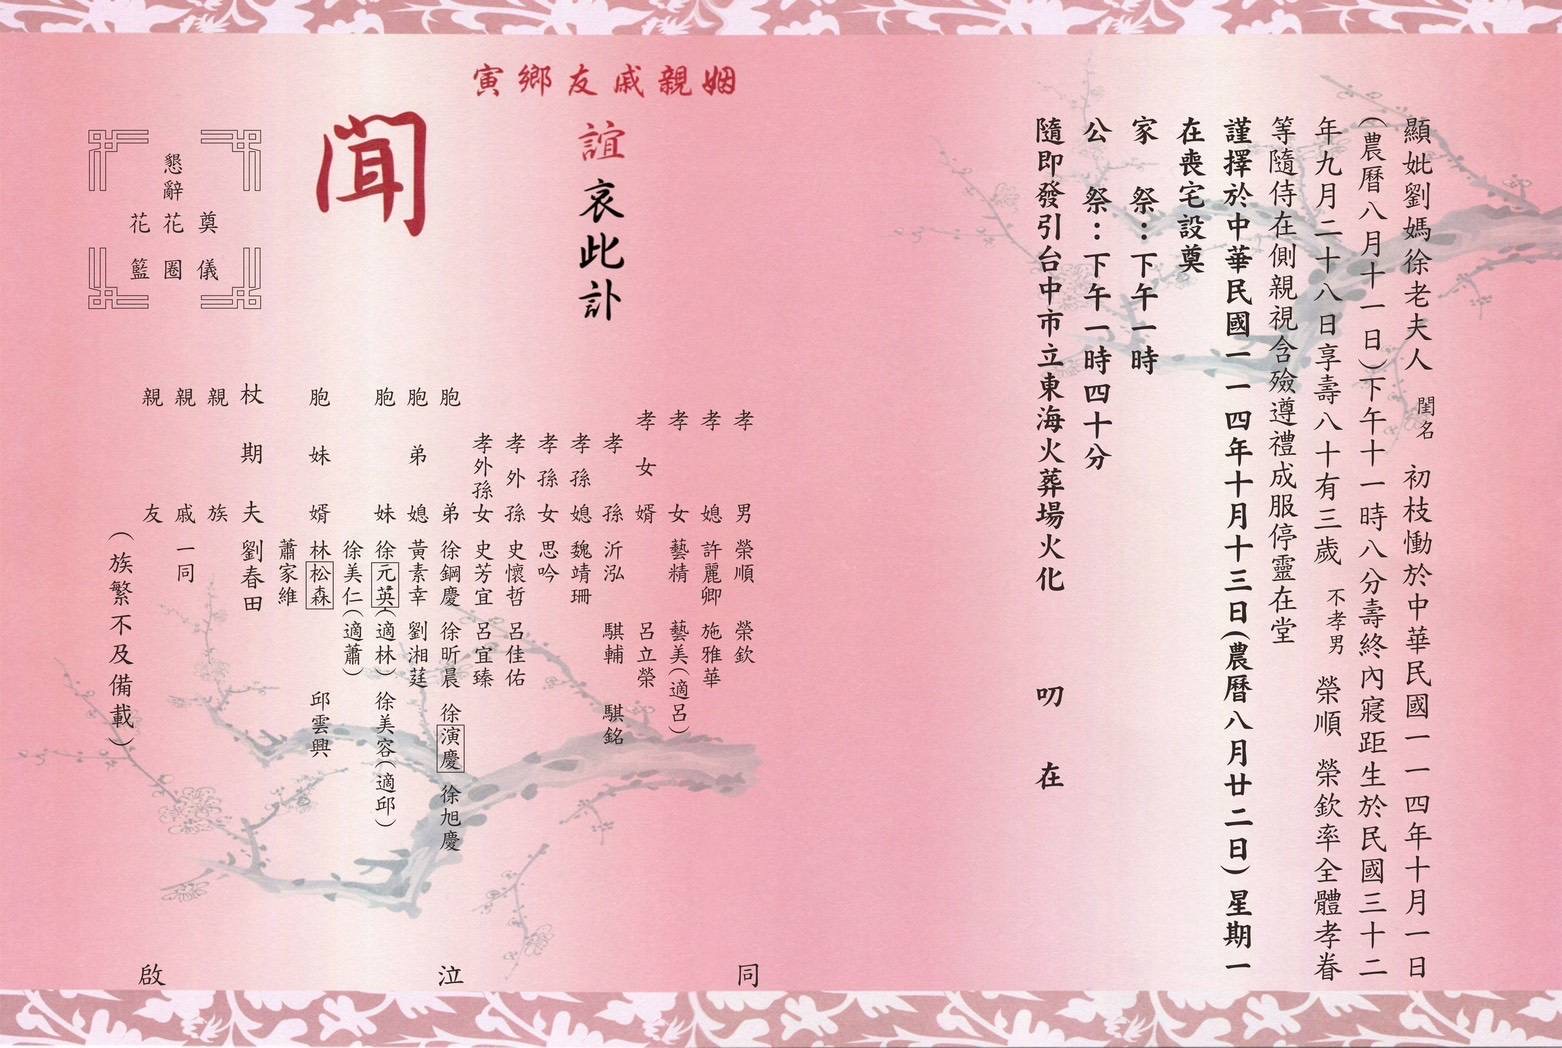 顯妣劉媽徐老夫人 閨名 初枝慟於中華民國一一四年十月一日
(農曆八月十一日)下午十一時八分壽終內寢距生於民國三十二
年九月二十八日享壽八十有三歲 不孝男 榮順 榮欽率全體孝眷
等隨侍在側親視含殮遵禮成服停靈在堂
謹擇於中華民國一一四年十月十三日(農曆八月廿二日)星期一
在喪宅設奠
家 祭：下午一時
公 祭：下午一時四十分
隨即發引台中市立東海火葬場火化 叨 在
寅鄉友戚親姻
誼 哀此訃
聞
孝男 榮順 榮欽
孝媳 許麗卿 施雅華
孝女 藝精 藝美(適呂)
孝女婿 呂立榮
孝孫 沂泓 騏輔 騏銘
孝孫媳 魏靖珊
孝孫女 思吟
孝外孫 史懷哲 呂佳佑
孝外孫女 史芳宜 呂宜臻
胞弟 徐鋼慶 徐昕晨 徐演慶 徐旭慶
胞弟媳 黃素幸 劉湘莛
胞妹 徐元英(適林) 徐美容(適邱)
徐美仁(適蕭)
胞妹婿 林松森 邱雲興
蕭家維
杖期夫 劉春田
親族
親戚 一同
親友
(族繁不及備載)
同 泣 啟
懇辭
奠儀
花圈
花籃